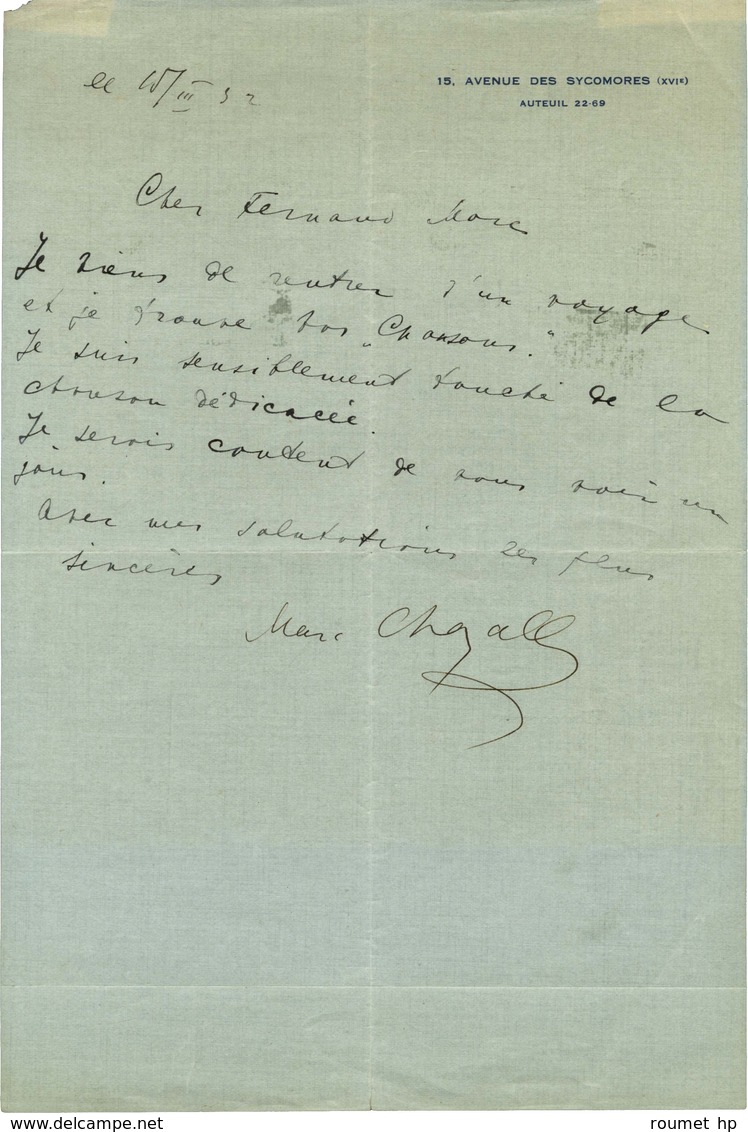 15, AVENUE DES SYCOMORES (XVIE)
AUTEUIL 22-69
le 15/III 32
Cher Fernand Marc
Je viens de rentrer d'un voyage
et je trouve vos „Chansons."
Je suis sensiblement touché de la
chanson dédicacée.
Je serais content de vous voir un
jour.
Avec mes salutations les plus
sincères
Marc Chagall
www.delcampe.net
roumet hp